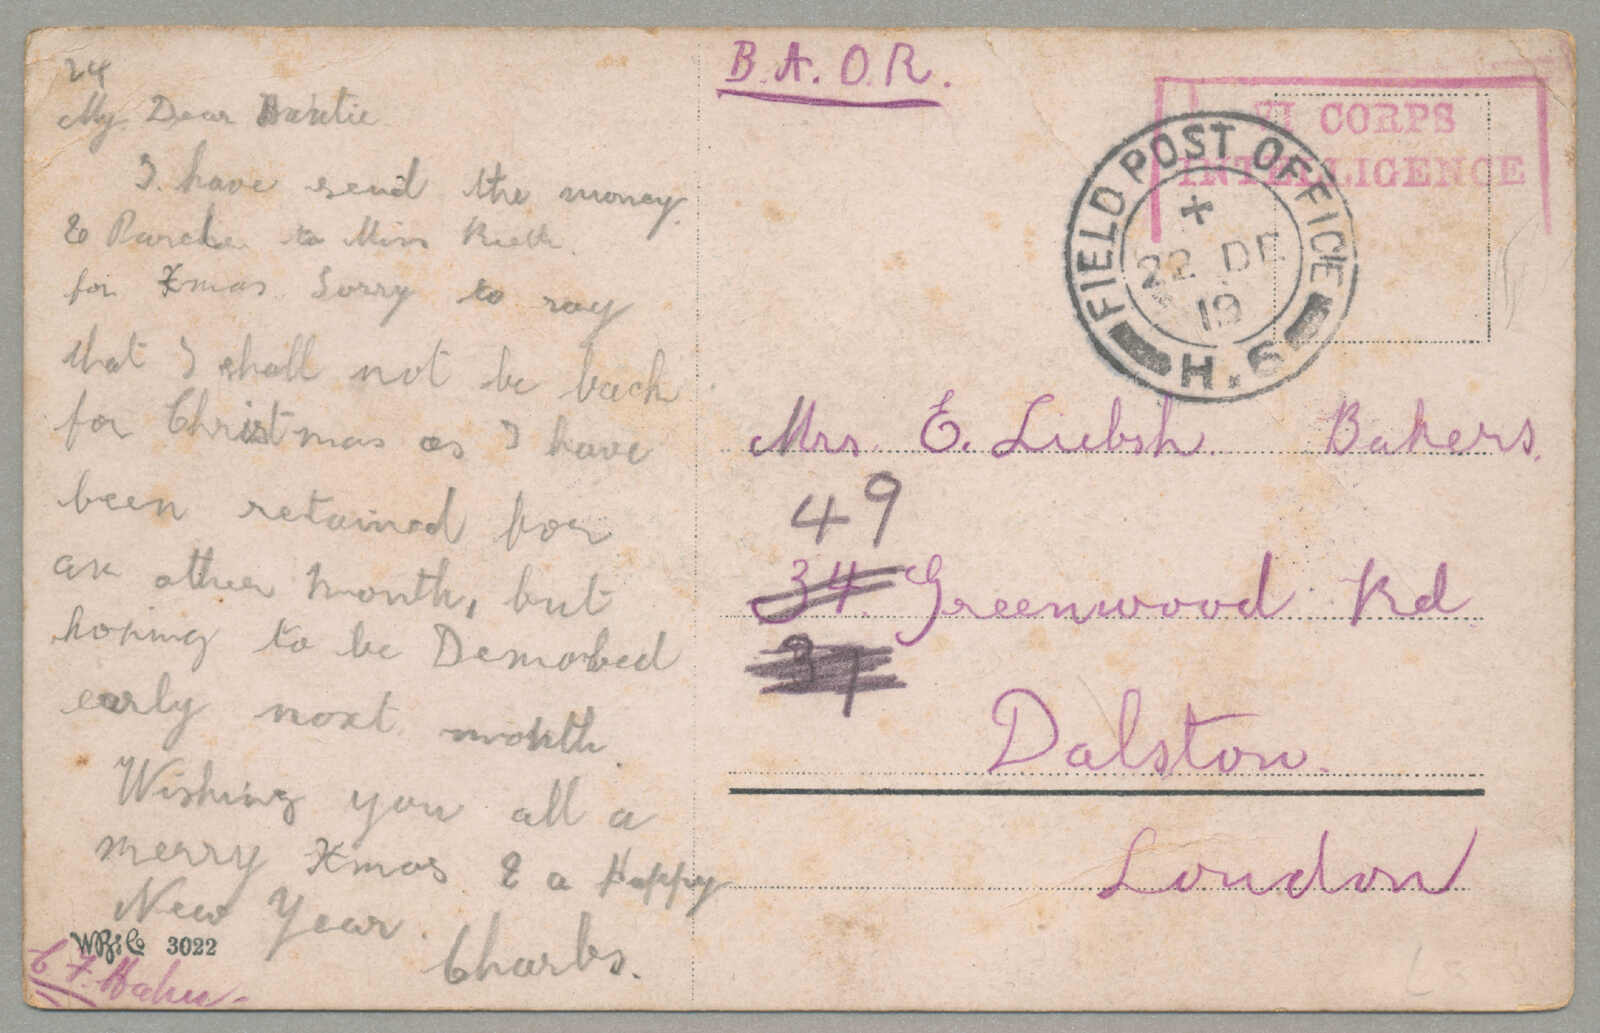 24
My Dear Auntie
I have send the money
& Parcle to Miss
for Xmas. Sorry to say
that I shall not be back
for Christmas as I have
been retained for
an other month, but
hoping to be Demobed
early next month.
Wishing you all a
merry Xmas & a Happy
New Year.
Charles.
W.B.&Co 3022
C F. Hahn.
B.A.O.R.
VI CORPS
INTELLIGENCE
FIELD POST OFFICE
22 DE
19
H.6
Mrs. E. Liebsh. Bakers.
49
34. Greenwood Rd
37
Dalston.
London